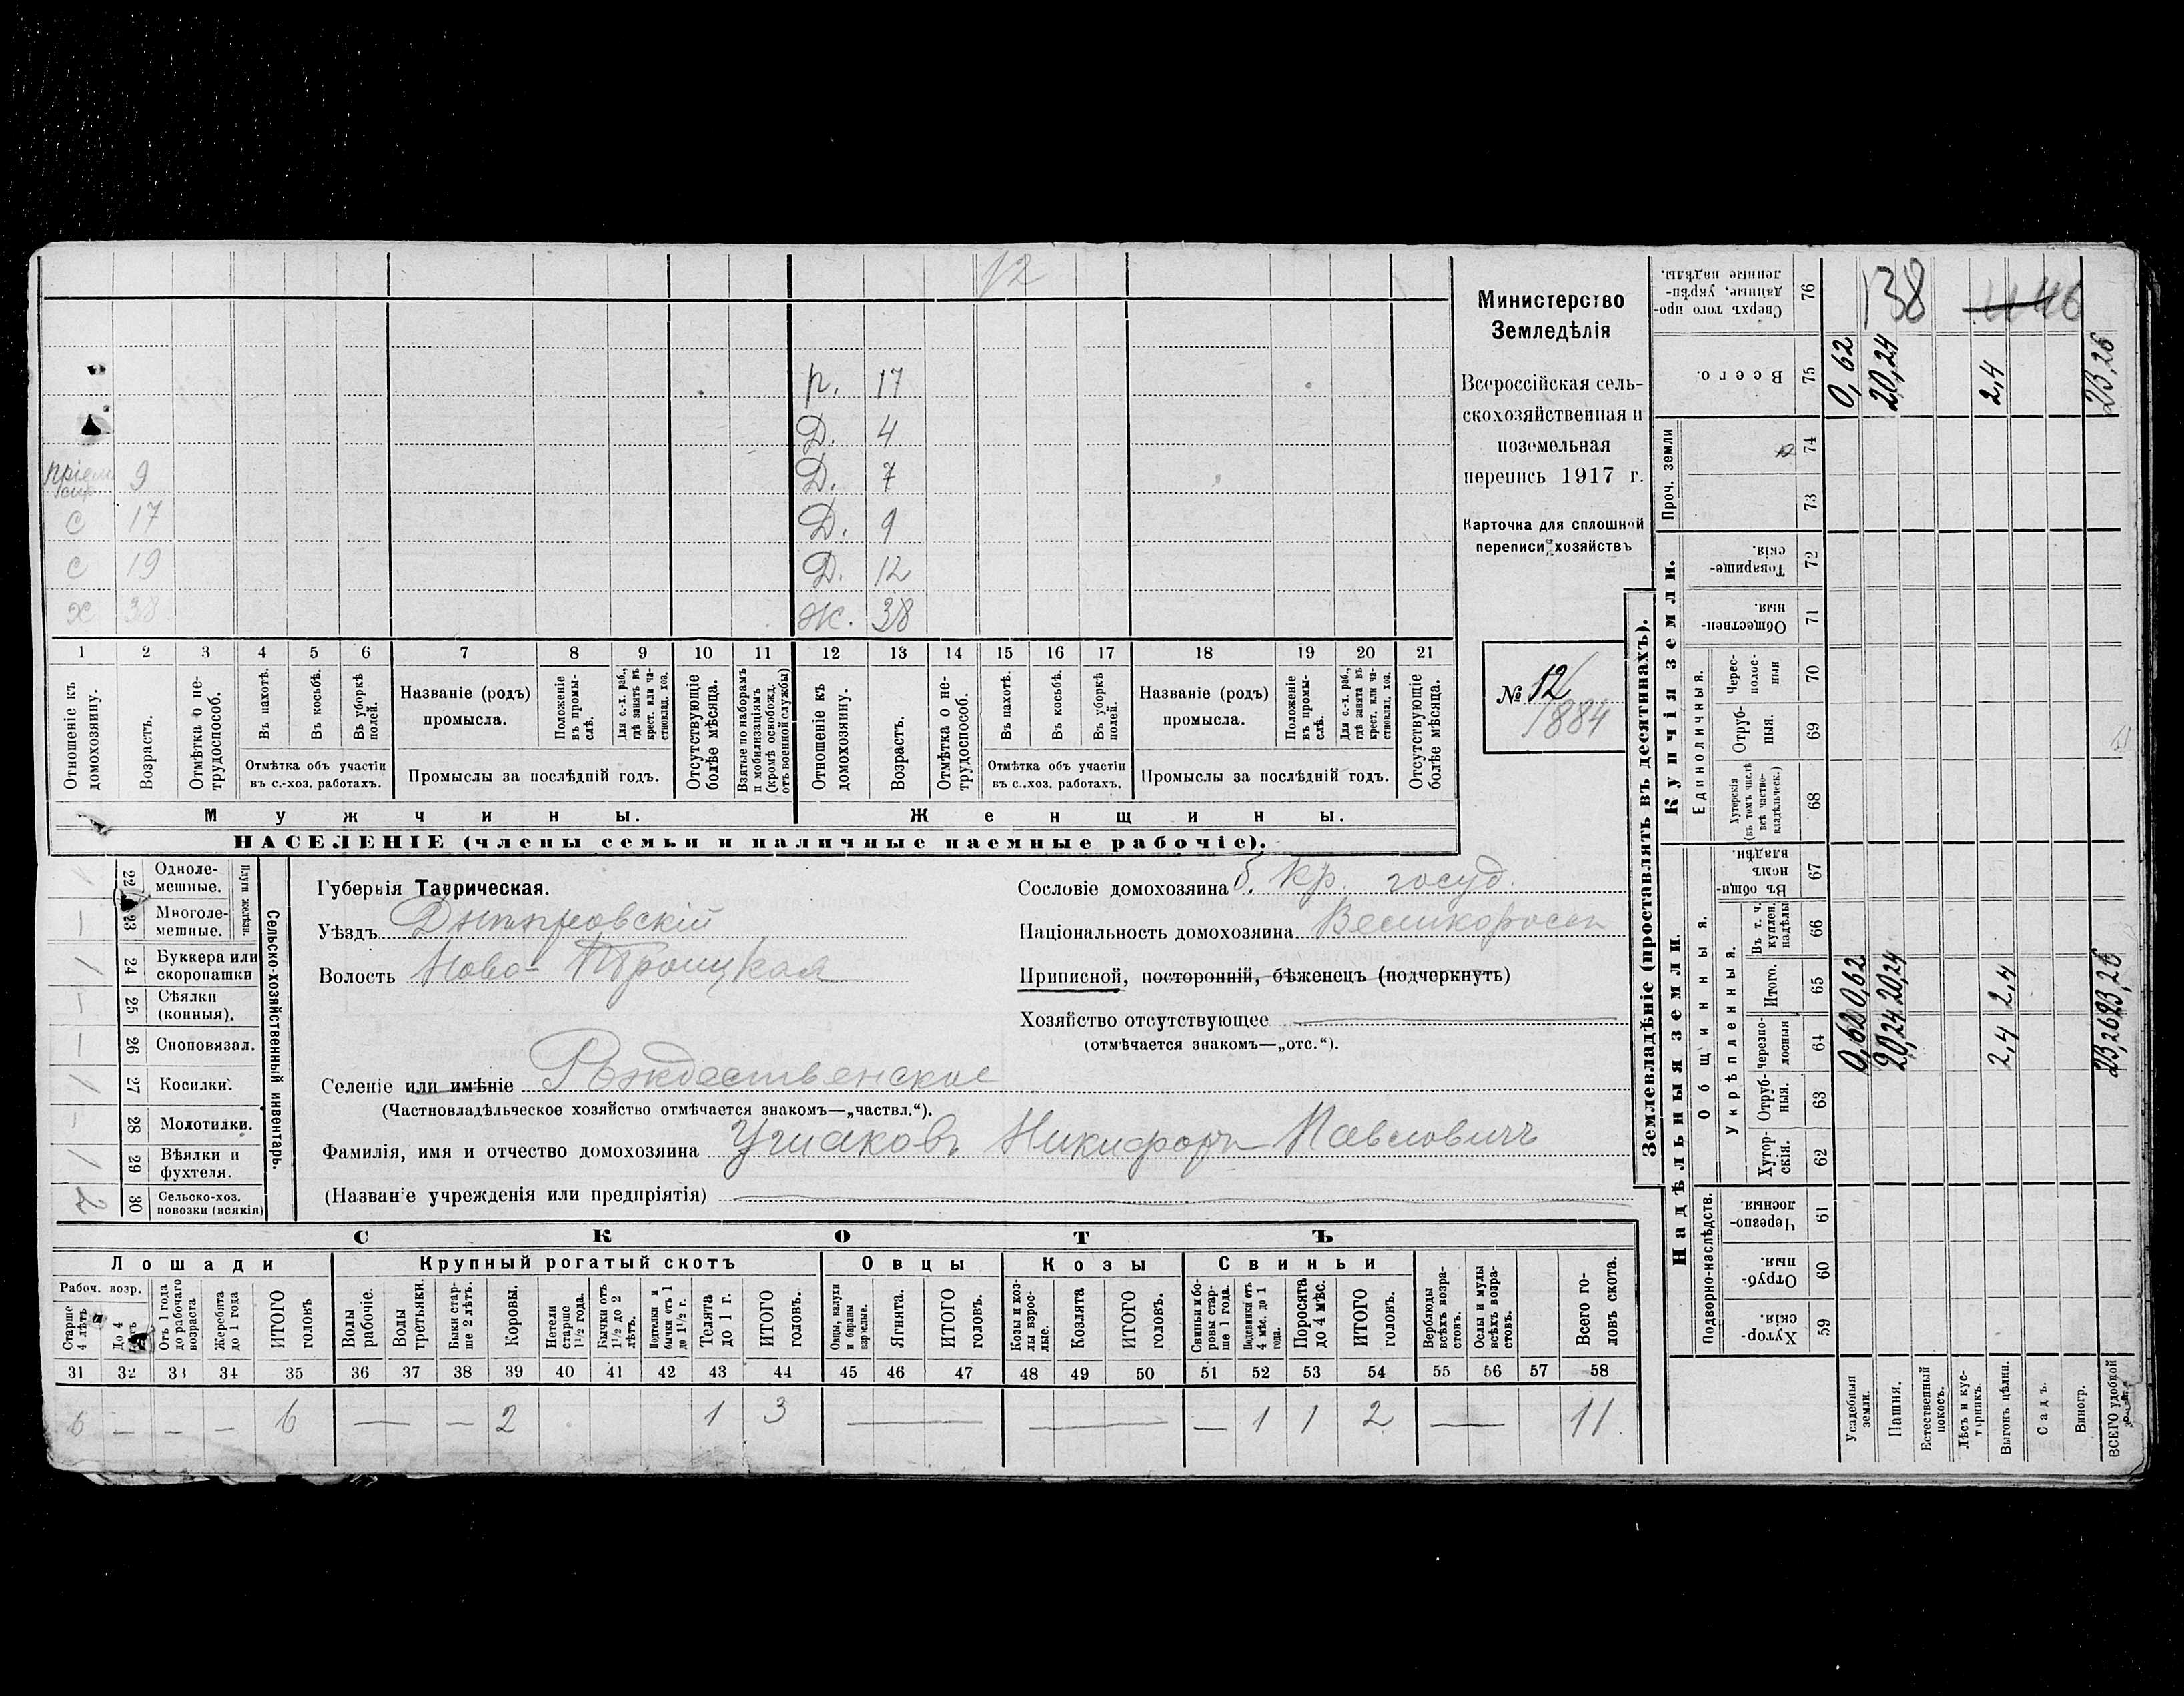 12
р. 17
Д. 4
пріемн сир 9 Д. 7
с 17 Д. 9
с 19 Д. 12
х 38 ж. 38
1 2 3 4 5 6 7 8 9 10 11 12 13 14 15 16 17 18 19 20 21
Отношеніе къ домохозяину.
Возрастъ.
Отмѣтка о не-трудоспособ.
Въ пахотѣ.
Въ косьбѣ.
Въ уборкѣ полей.
Отмѣтка объ участіи въ с.-хоз. работахъ.
Названіе (родъ) промысла.
Положеніе въ промы-слѣ.
Для с.-х. раб., гдѣ занятъ въ крест. или ча-стновлад. хоз.
Промыслы за послѣдній годъ.
Отсутствующіе болѣе мѣсяца.
Взятые по наборамъ и мобилизаціямъ (кромѣ освобожд. отъ военной службы)
Отношеніе къ домохозяину.
Возрастъ.
Отмѣтка о не-трудоспособ.
Въ пахотѣ.
Въ косьбѣ.
Въ уборкѣ полей.
Отмѣтка объ участіи въ с..хоз. работахъ.
Названіе (родъ) промысла.
Положеніе въ промы-слѣ.
Для с.-х. раб., гдѣ занята въ крест. или ча-стновлад. хоз.
Промыслы за послѣдній годъ.
Отсутствующіе болѣе мѣсяца.
Мужчины. Женщины.
НАСЕЛЕНІЕ (члены семьи и наличные наемные рабочіе).
Министерство
Земледѣлія
Всероссійская сель-
скохозяйственная и
поземельная
перепись 1917 г.
Карточка для сплошной
переписи хозяйствъ
№ 12/
1884
Сельско-хозяйственный инвентарь.
Плуги желѣзн.
22 Одноле-мешные.
23 Многоле-мешные.
24 Буккера или скоропашки
25 Сѣялки (конныя).
26 Сноповязал.
27 Косилки.
28 Молотилки.
29 Вѣялки и фухтеля.
30 Сельско-хоз. повозки (всякія) 2
Губернія Таврическая.
Уѣздъ Днѣпровскій
Волость Ново-Троицкая
Сословіе домохозяина б. кр. госуд.
Національность домохозяина Великоросъ
Приписной, посторонній, бѣженецъ (подчеркнуть)
Хозяйство отсутствующее
(отмѣчается знакомъ—„отс.“).
Селеніе или имѣніе Рождественское
(Частновладѣльческое хозяйство отмѣчается знакомъ—„частвл.“).
Фамилія, имя и отчество домохозяина Ушаковъ Никифоръ Павловичъ
(Названіе учрежденія или предпріятія)
СКОТЪ
Лошади Крупный рогатый скотъ Овцы Козы Свиньи
Рабоч. возр.
Старше 4 лѣтъ
До 4 лѣтъ
Отъ 1 года до рабочаго возраста
Жеребята до 1 года
ИТОГО головъ
Волы рабочіе.
Волы третьяки.
Быки стар-ше 2 лѣтъ.
Коровы.
Нетели старше 1½ года.
Бычки отъ 1½ до 2 лѣтъ.
Подтелки и бычки отъ 1 до 1½ г.
Телята до 1 г.
ИТОГО головъ.
Овцы, валухи и бараны взрослые.
Ягнята.
ИТОГО головъ.
Козы и коз-лы взрос-лые.
Козлята
ИТОГО головъ.
Свиньи и бо-ровы стар-ше 1 года.
Подсвинки отъ 4 мѣс. до 1 года.
Поросята до 4 мѣс.
ИТОГО головъ.
Верблюды всѣхъ возра-стовъ.
Ослы и мулы всѣхъ возра-стовъ.
Всего го-ловъ скота.
31 32 33 34 35 36 37 38 39 40 41 42 43 44 45 46 47 48 49 50 51 52 53 54 55 56 57 58
6 — — — 6 — — 2 1 3 — — — 1 1 2 — 11
Землевладѣніе (проставлять въ десятинахъ).
Надѣльныя земли. Купчія земли. Проч. земли
Подворно-наслѣдств.
Общинныя.
Укрѣпленныя.
Единоличныя.
59 Хутор-скія.
60 Отруб-ныя.
61 Черезпо-лосныя
62 Хутор-скія.
63 Отруб-ныя.
64 Черезпо-лосныя
65 Итого.
66 Въ т. ч. куплен. надѣлы
67 Въ общин-номъ владѣн.
68 Хуторскія (въ томъ числѣ всѣ частно-владѣльческ.)
69 Отруб-ныя.
70 Черес-полос-ныя
71 Обществен-ныя.
72 Товарище-скія.
73
74
75 Всего.
76 Сверхъ того про-данные, укрѣп-ленные надѣлы.
Усадебныя земли. 0,62 0,62 0,62
Пашня. 20,24 20,24 20,24 138
Естественный покосъ.
Лѣсъ и кус-тарникъ.
Выгонъ цѣлин. 2,4 2,4 2,4
Садъ.
Виногр.
ВСЕГО удобной земли. 23,26 23,26 23,26